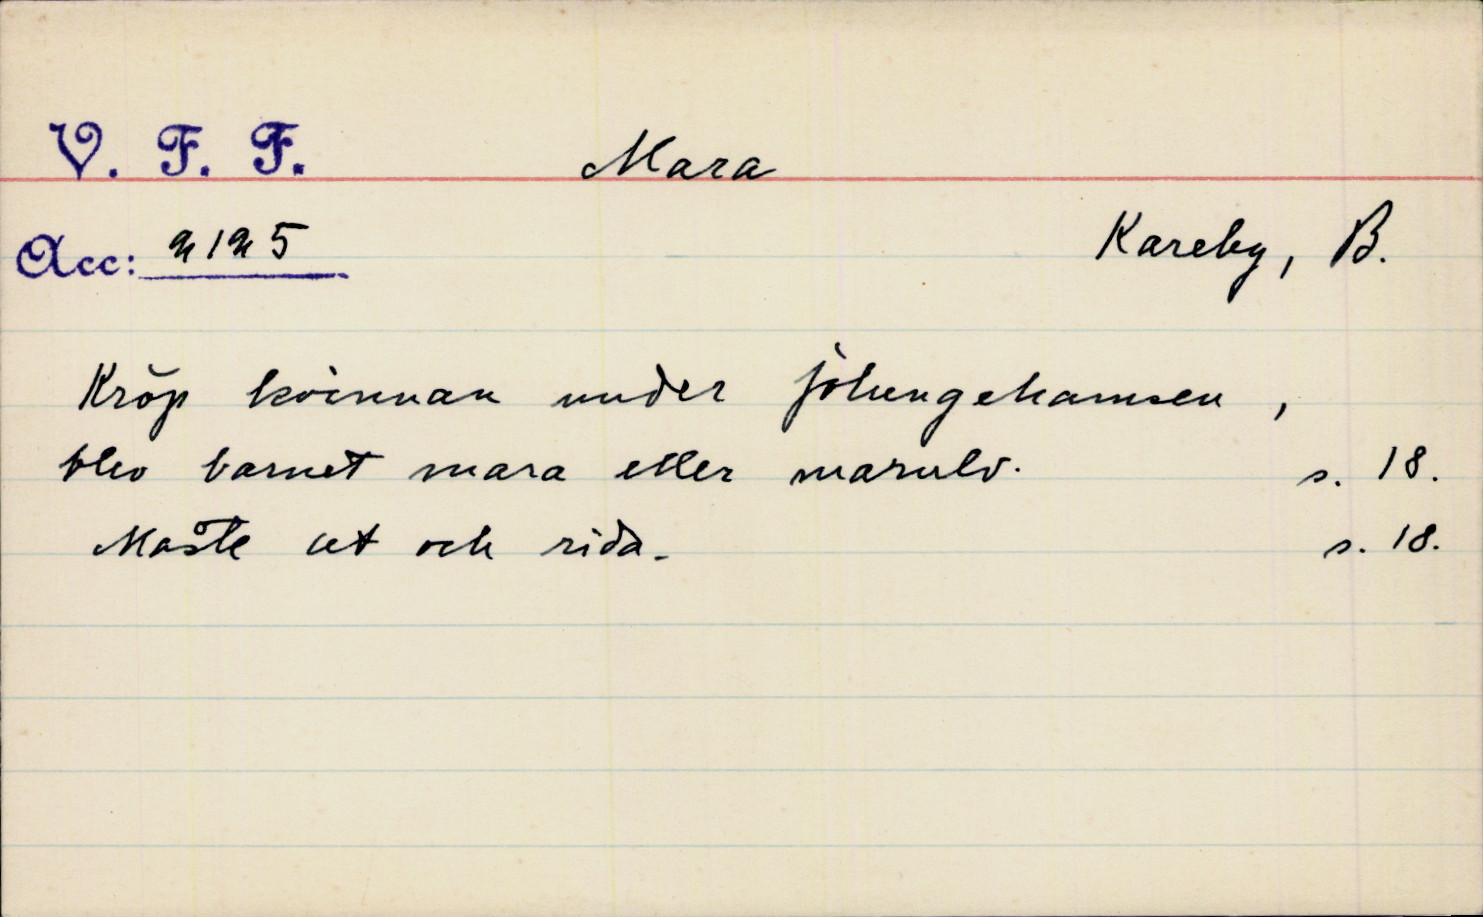 V. F. F. Mara
Acc: 2125 Kareby, B.
Kröp kvinnan under fölungehamsen,
blev barnet mara eller marulv. s. 18.
Måste ut och rida. s. 18.